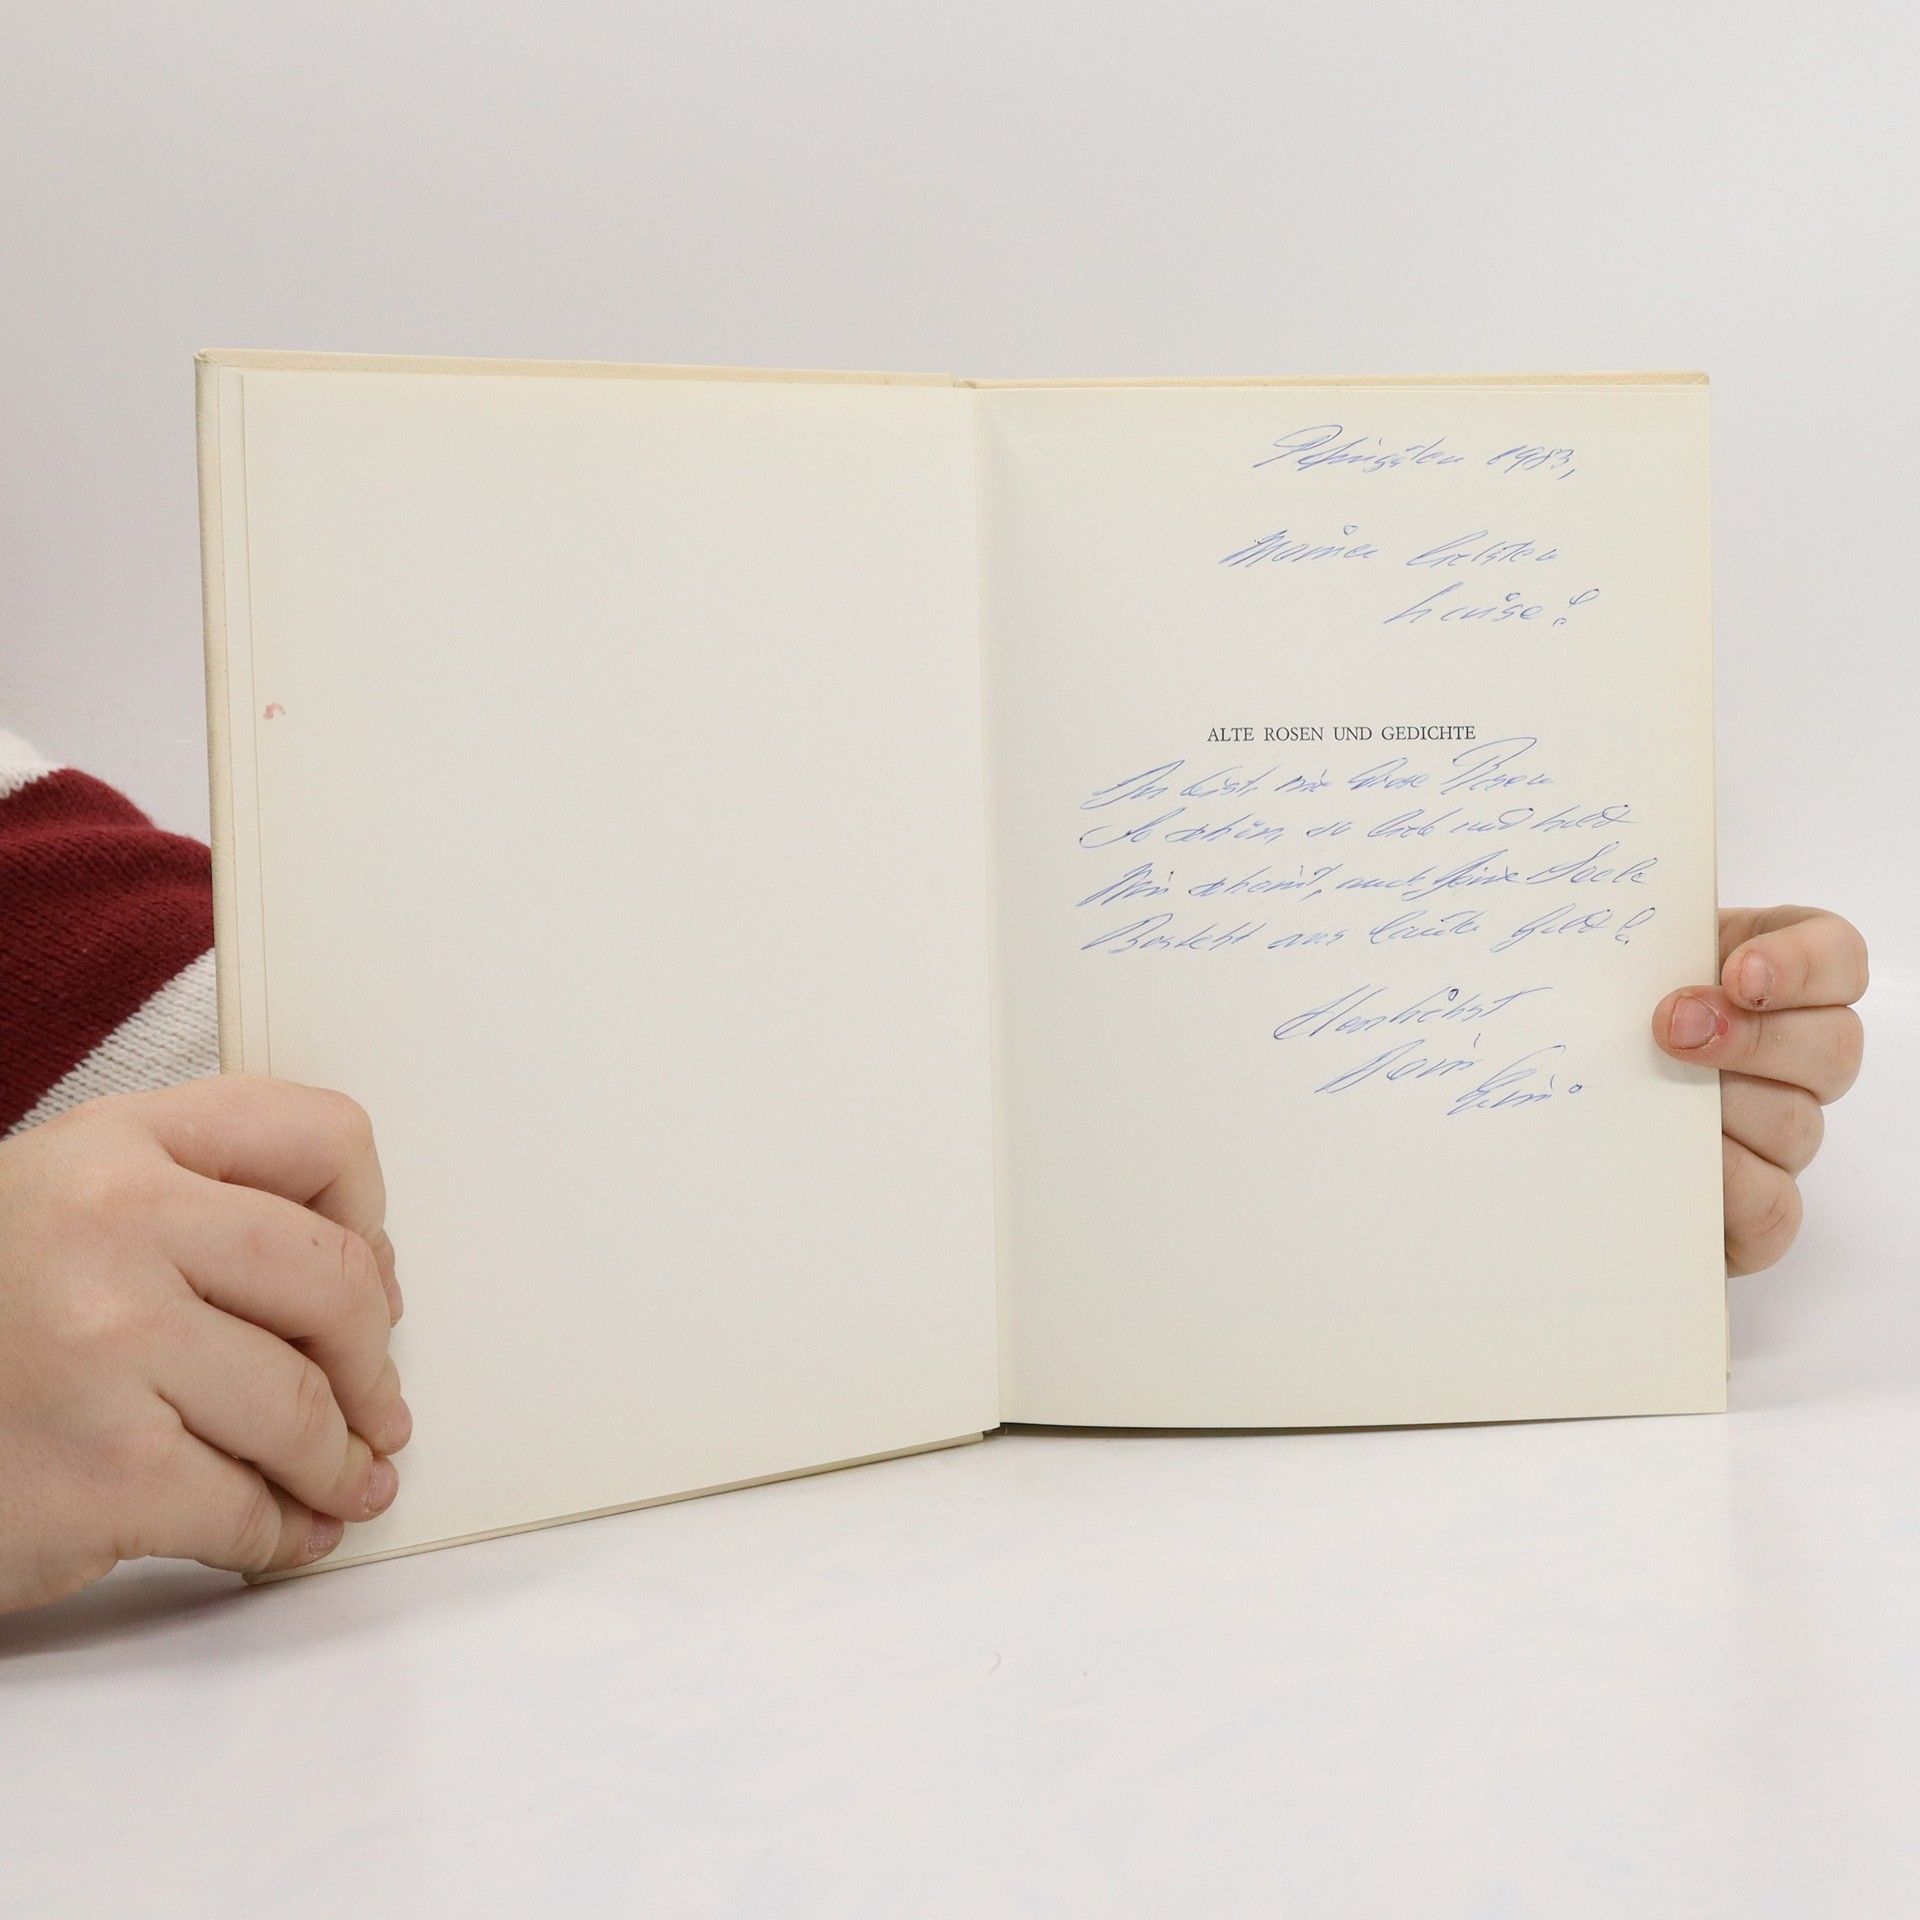 Pfingsten 1983,
Meiner liebsten
Luise!
ALTE ROSEN UND GEDICHTE
Du bist, wie diese Rosen
So schön, so lieb und hold
Mir scheint, auch Deine Seele
Besteht aus lauter Gold!
Herzlichst
Dein